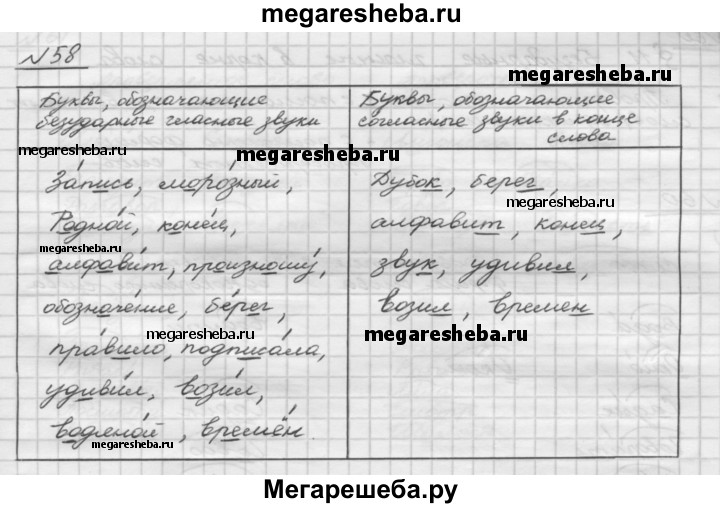 megaresheba.ru
№58
megaresheba.ru
Буквы, обозначающие
безударные гласные звуки
Буквы, обозначающие
согласные звуки в конце
слова
megaresheba.ru
megaresheba.ru
Запись, морозный,
Родной, конец,
megaresheba.ru
алфавит, произношу,
обозначение, берег,
megaresheba.ru
правило, подписала,
удивил, возил,
водяной, времён.
megaresheba.ru
Дубок, берег,
megaresheba.ru
алфавит, конец,
звук, удивил,
возил, времен
megaresheba.ru
megaresheba.ru
Мегарешеба.ру